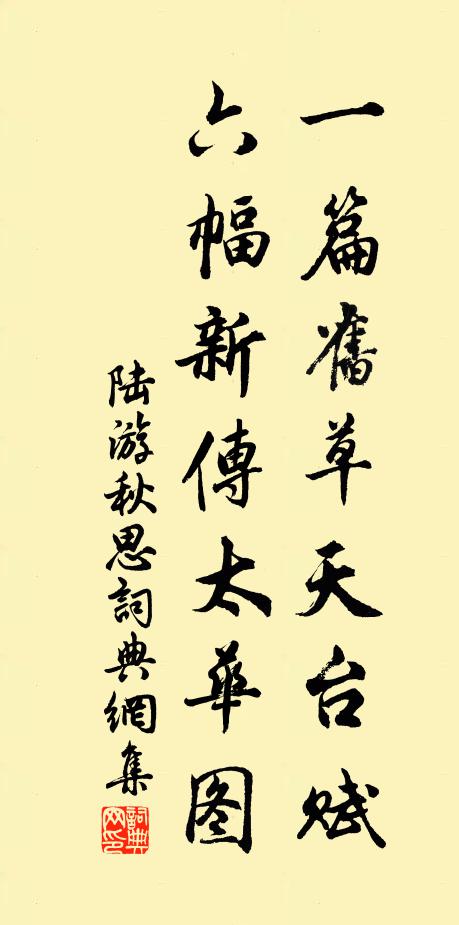 一篇舊草天台賦
六幅新傳太華图
陆游秋思詞典網集
詞典網印